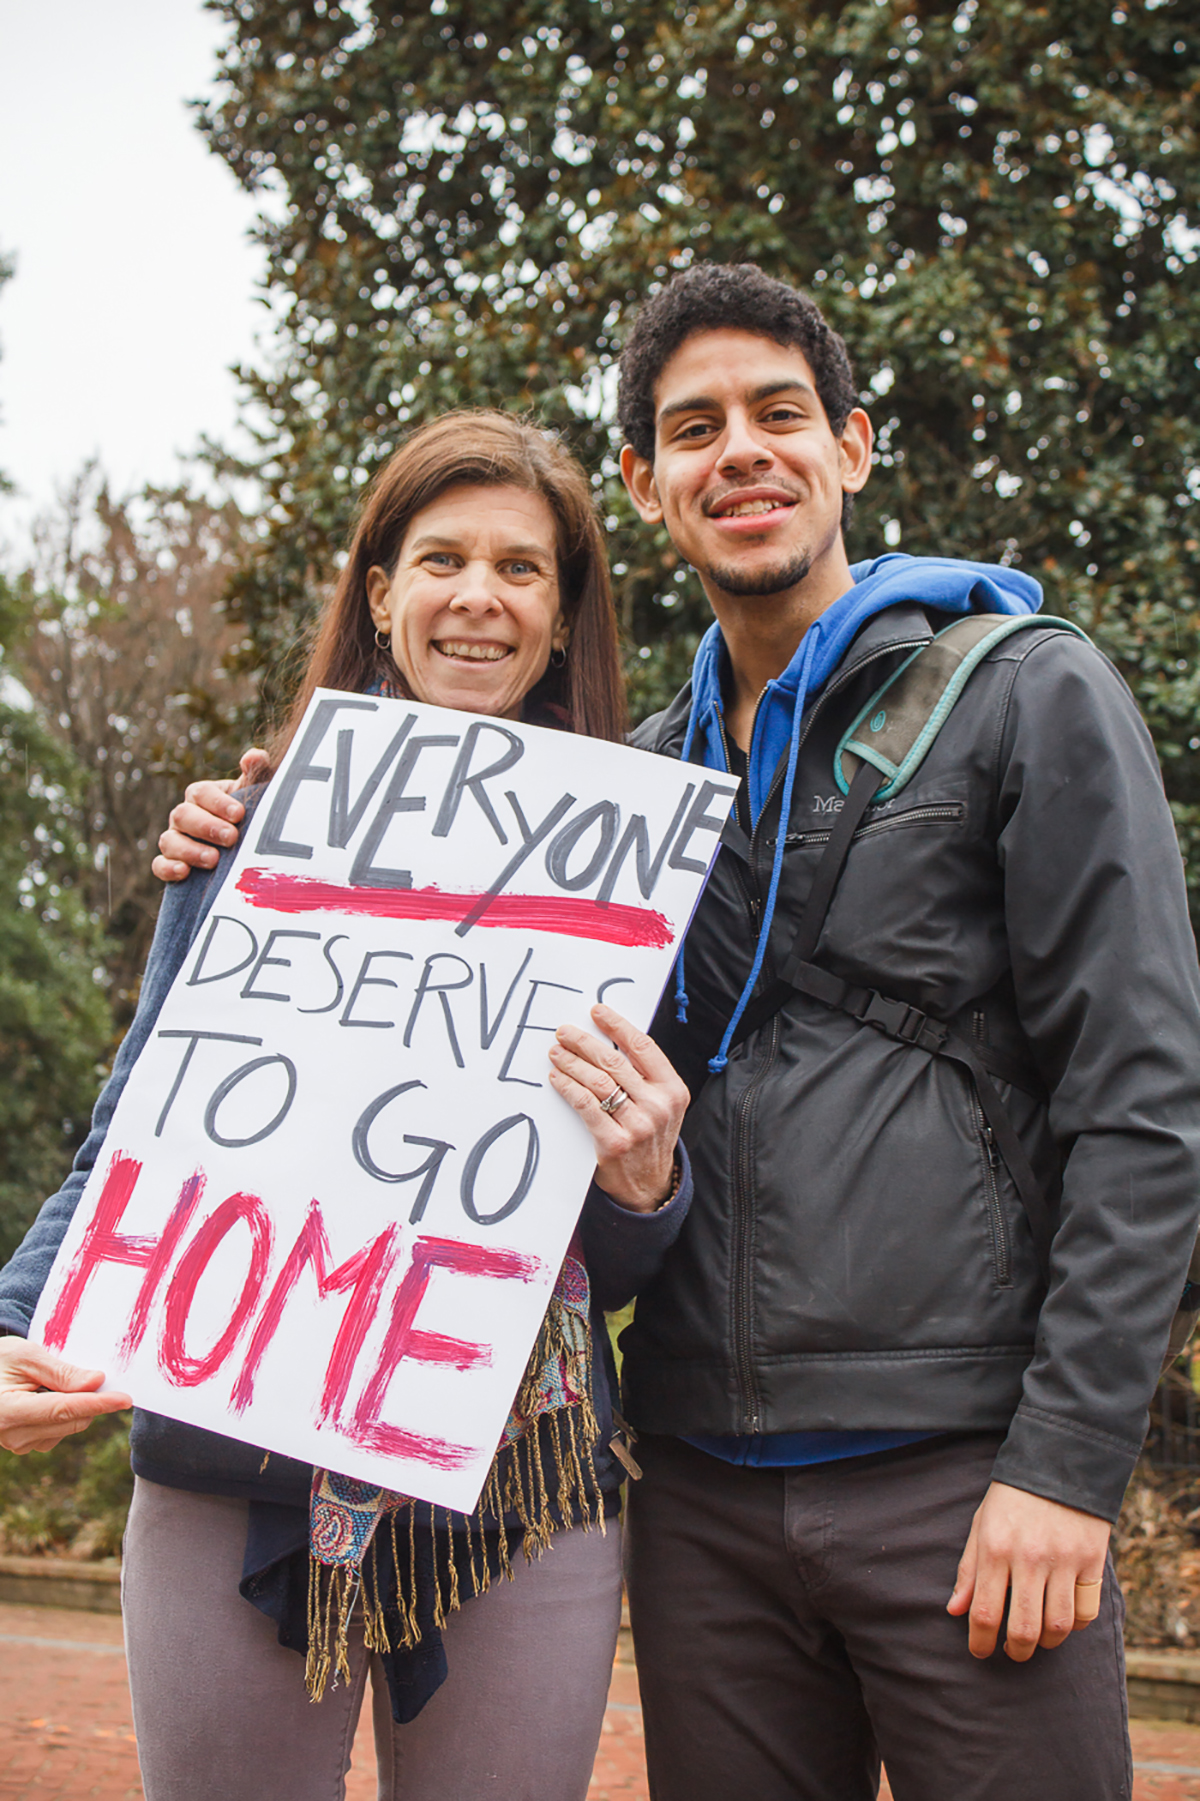 EVERYONE
DESERVES
TO GO
HOME